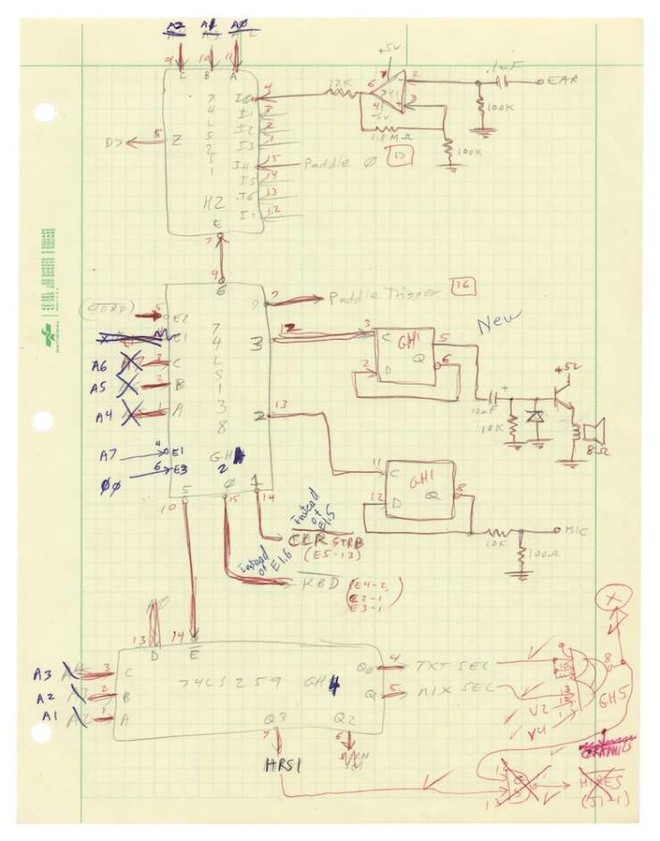 A2 A1 A0
9 10 11
C B A
+5V
.1uF
EAR
12K
6 7 2
741
4 3
-5V
100K
1.8MΩ
100K
I0 4
I1 3
I2 2
I3 1
I4 15 Paddle 0
I5 14
I6 13
I7 12
D7 5 Z
74LS251
H2
E
7
9
6
7 Paddle Trigger 16
New
5 E2
E1
A6 3 C
A5 2 B
A4 1 A
A7 4 E1
00 6 E3
74LS138
GH
2
3
3 C GH1 5
Q 6
2 D
+5V
10uF
10K
8Ω
2 13
11 C GH1
12 D Q 8
10K
MIC
100Ω
10 15 14
5 0 1
Instead of E1.5
CLR STRB
(E5-13)
Instead of E1.6
KBD (E4-2,
E2-1
E3-1)
13 14
D E
A3 3 C
A2 2 B
A1 1 A
74LS259 GH4
Q0 4 TXT SEL
Q 5 MIX SEL
V2
V4
9
8
GH5
X
Q3 Q2
7 6
HRS1
GRAPHICS
13
HIRES
(J1-1)